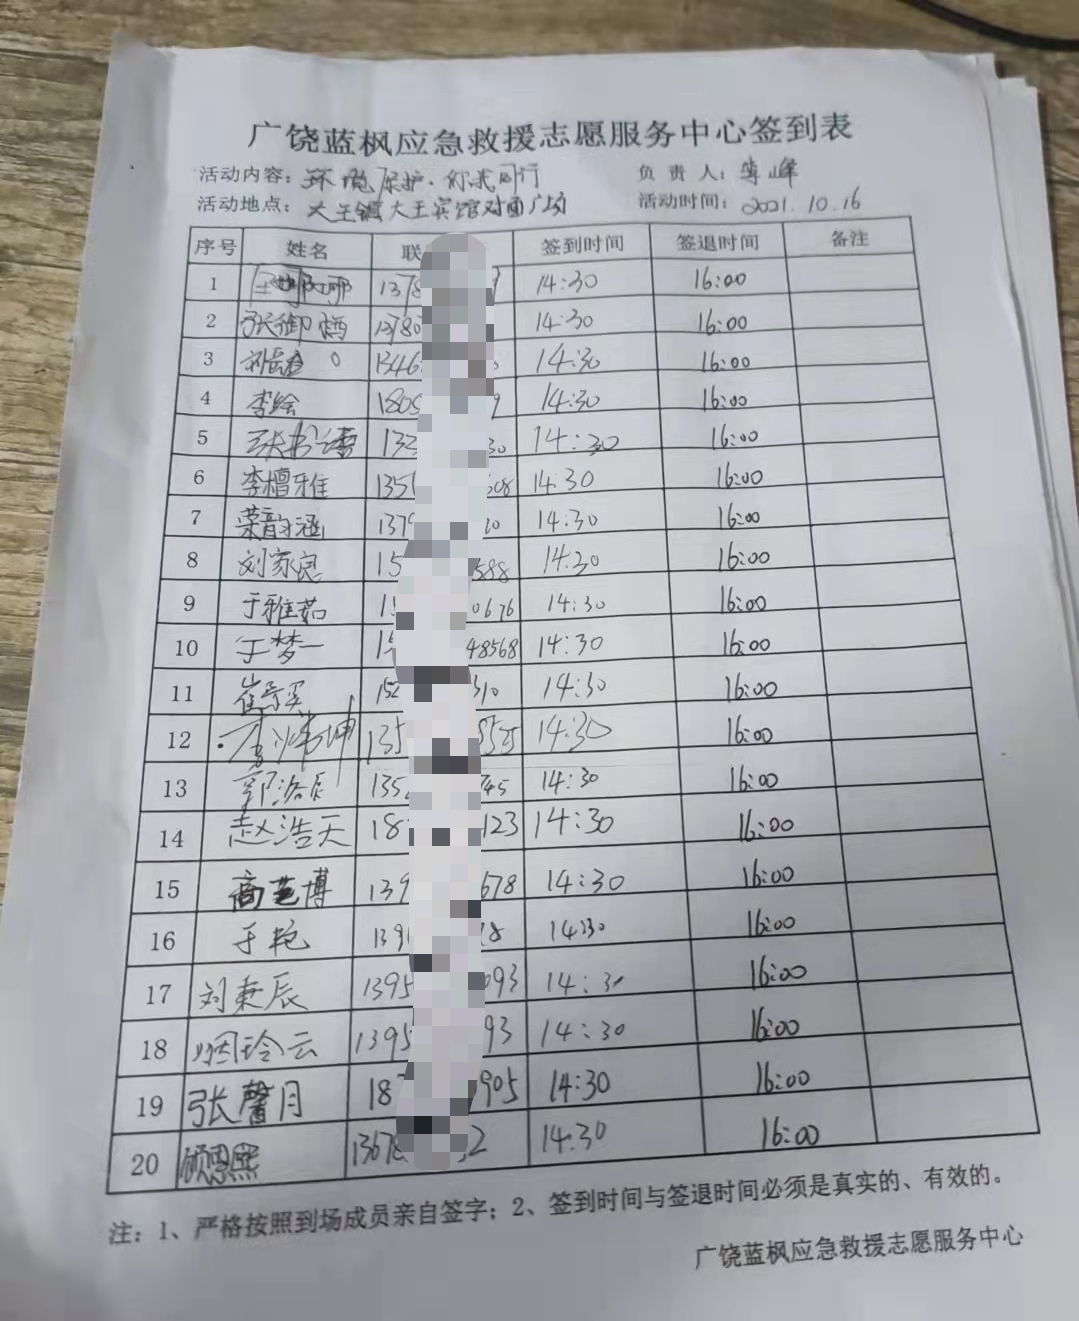 广饶蓝枫应急救援志愿服务中心签到表
活动内容：环境保护·你我同行 负责人：李峰
活动地点：大王镇大王宾馆对面广场 活动时间：2021.10.16
序号 姓名 联 签到时间 签退时间 备注
1 1378 14:30 16:00
2 张御 1378 14:30 16:00
3 1346 14:30 16:00
4 李绘 1805 9 14:30 16:00
5 张 133 30 14:30 16:00
6 李檀雅 135 508 14:30 16:00
7 荣韵涵 1379 14:30 16:00
8 刘家良 15 588 14:30 16:00
9 于雅茹 15 0676 14:30 16:00
10 于梦一 15 48568 14:30 16:00
11 崔 152 310 14:30 16:00
12 李 坤 135 8525 14:30 16:00
13 郭浩辰 135 745 14:30 16:00
14 赵浩天 18 123 14:30 16:00
15 商艺博 139 678 14:30 16:00
16 于艳 139 78 14:30 16:00
17 刘秉辰 1395 093 14:30 16:00
18 玲云 1395 93 14:30 16:00
19 张馨月 18 905 14:30 16:00
20 顾恩熙 13678 2 14:30 16:00
注：1、严格按照到场成员亲自签字；2、签到时间与签退时间必须是真实的、有效的。
广饶蓝枫应急救援志愿服务中心